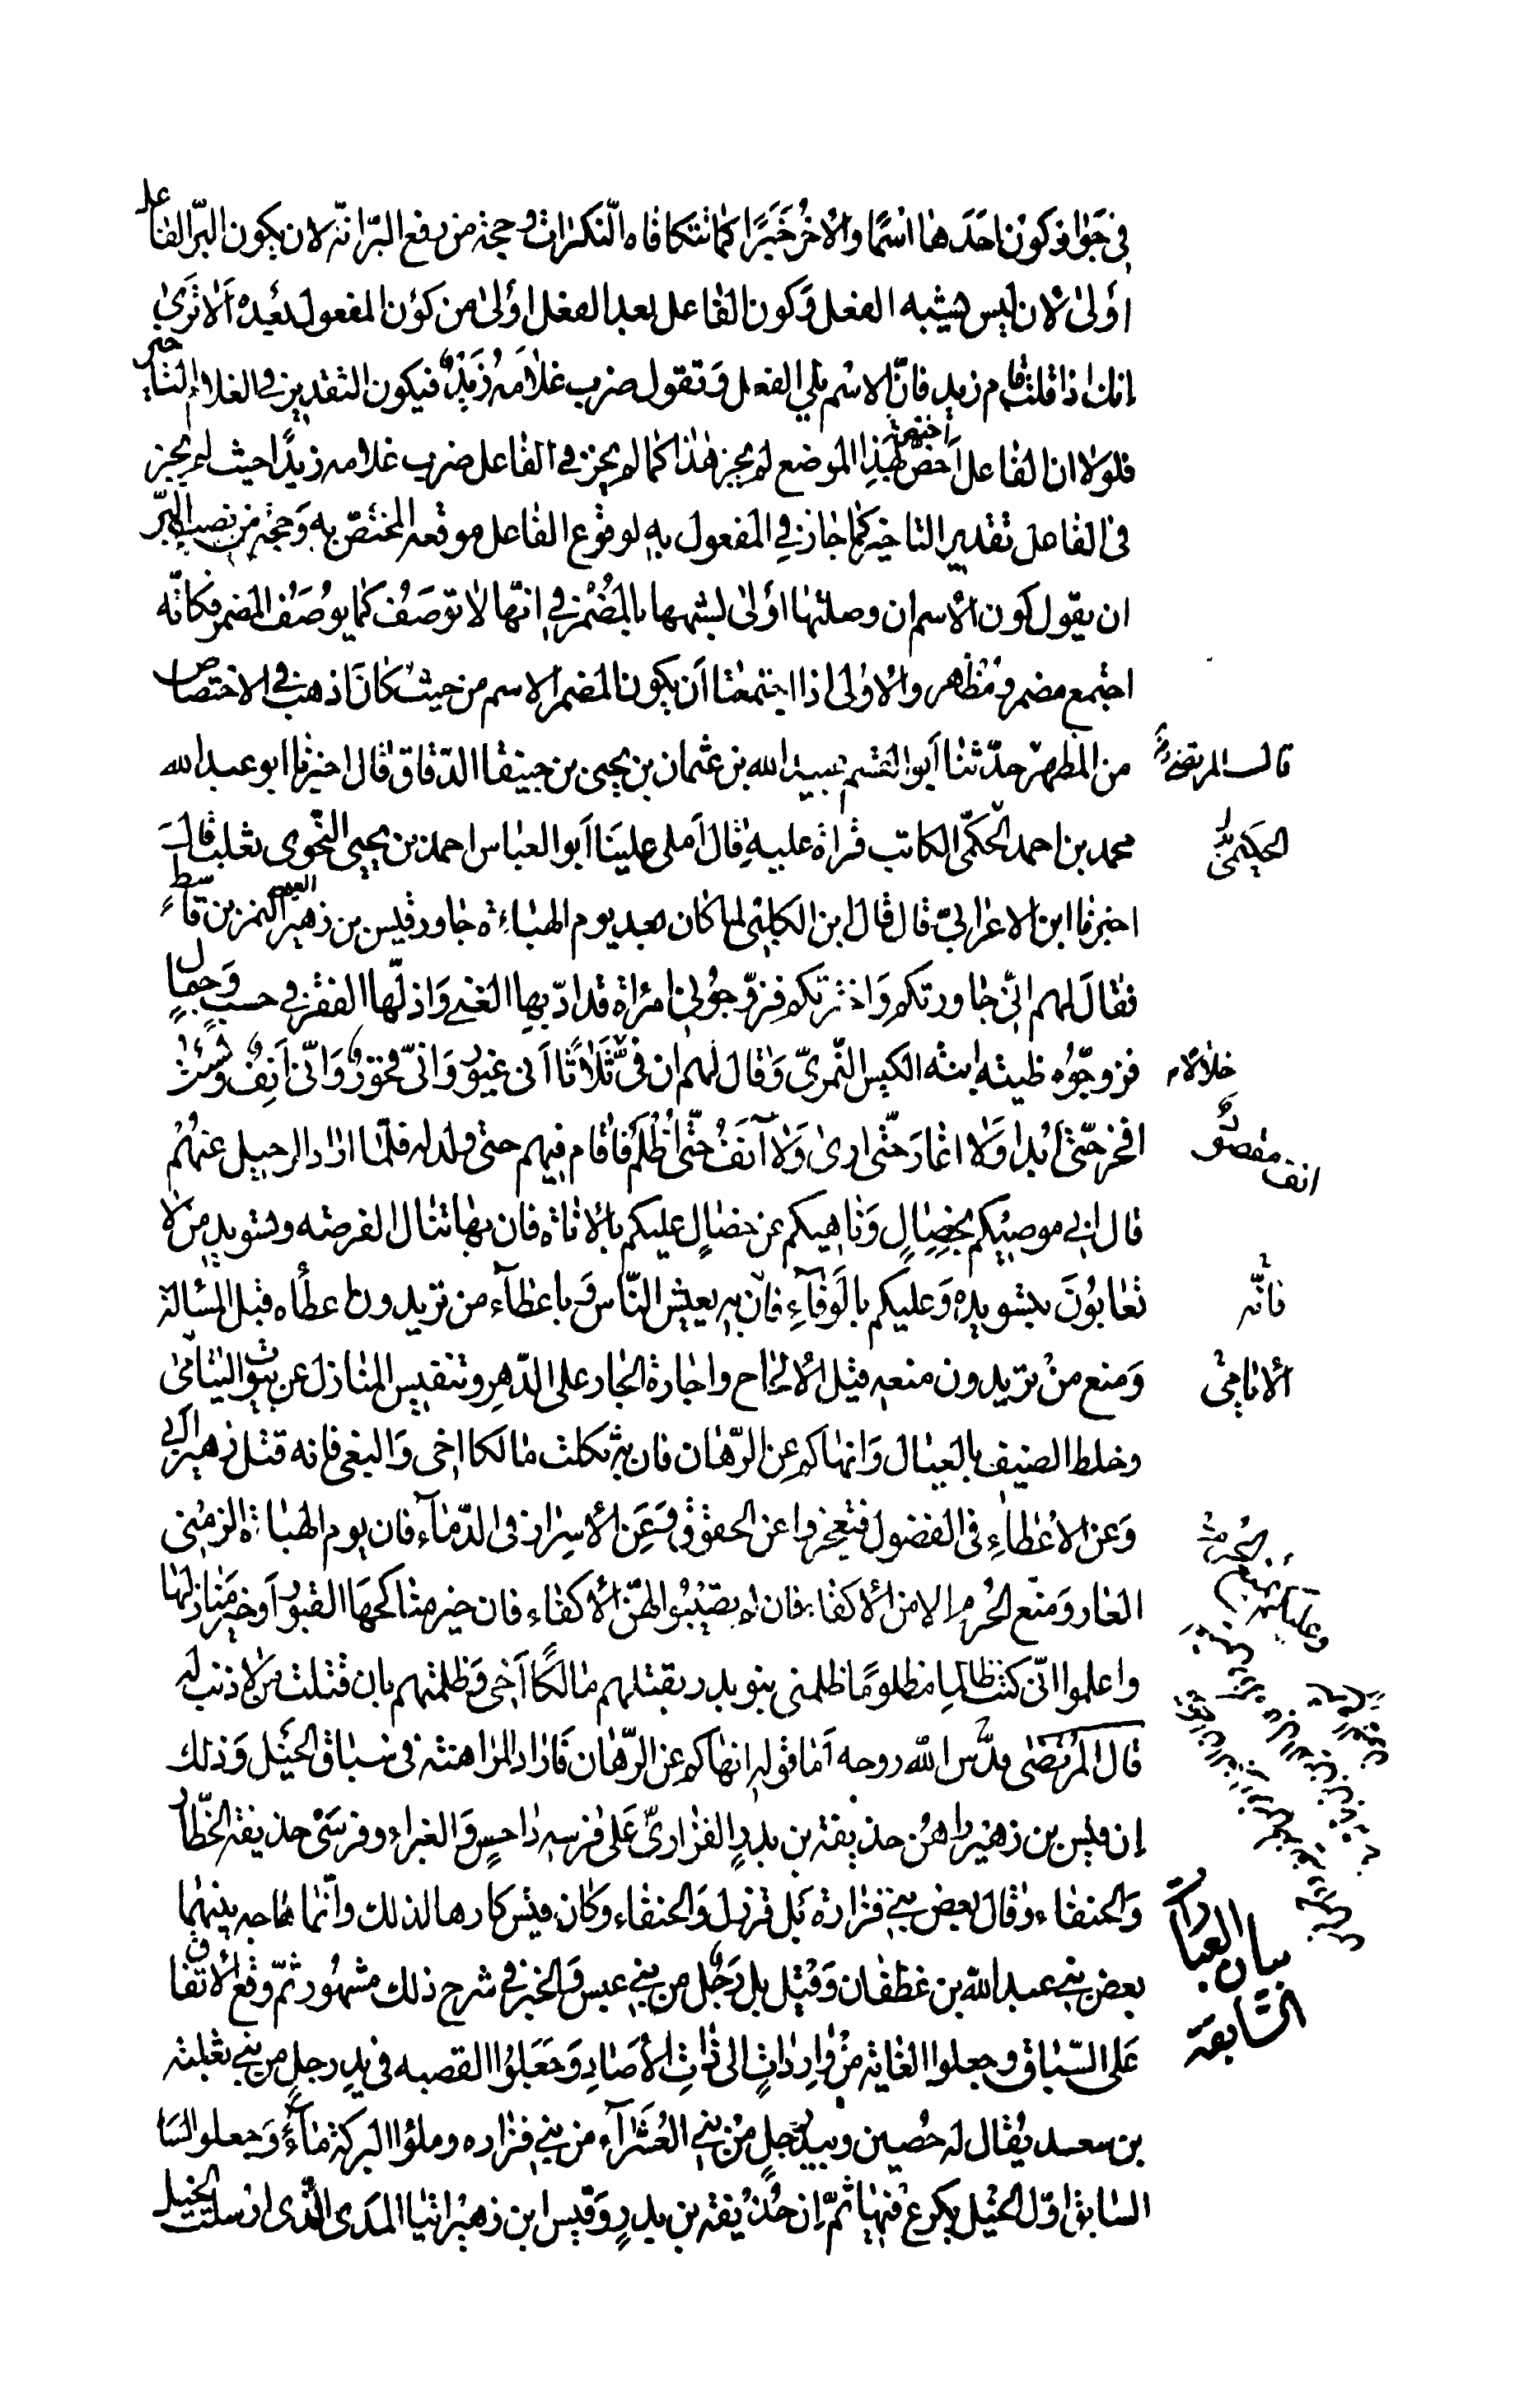 في جواز كون احدهما اسمًا والاخر خبرًا كما تتكافاه النكرات وحجة من رفع البرّ انّه لان يكون البرّ الفاعل
اولىٰ لان ليس يشبه الفعل وكون الفاعل بعد الفعل اولى من كون المفعول بعده الا ترىٰ
انك اذا قلت قام زيد فانّ الاسم يلي الفعل وتقول ضرب غلامه زيدٌ فيكون التقدير في الغلام التاخير
فلولا ان الفاعل اخصّ بهذا الموضع لم يجز هذا كما لم يجز في الفاعل ضرب غلامه زيدًا حيث لم يجز
في الفاعل تقدير التاخير كما جاز في المفعول به لوقوع الفاعل موقعه المختصّ به وحجة من نصب البرّ
ان يقول كون الاسم ان وصلتها اولىٰ لشبهها بالمضمر في انّها لا توصف كما لا يوصف المضمر فكانّه
اجتمع مضمر ومظهر والاولى اذا اجتمعا ان يكون المضمر الاسم من حيث كان اذهب في الاختصاص
من المظهر حدّثنا ابو القسم عبيد الله بن عثمان بن يحيى بن جنيقا الدّقاق قال اخبرنا ابو عبد الله
قال المرتضى
محمد بن احمد الحكمي الكاتب قراة عليه قال املى علينا ابو العباس احمد بن يحيى النّحوى ثعلب قال
الحكيمى
اخبرنا ابن الاعرابيّ قال قال ابن الكلبي لما كان بعد يوم الهباءة جاور قيس بن زهير النمر بن قاسط
فقال لهم انّي جاورتكم واخترتكم فزوّجوني امرأة قد ادّبها الغنى واذلّها الفقر في حسب وجمال
فزوّجوه ظبية ابنة الكيس النّمريّ وقال لهم ان فيّ ثلاثًا انى غيور وانّي فخور وانّى انف ولست
خلالا
افخر حتّى ابدا ولا اغار حتّى ارى ولا آنف حتّى اظلم فاقام فيهم حتى ولد له فلمّا اراد الرحيل عنهم
انف
قال انى موصيكم بخصال وناهيكم عن خصال عليكم بالاناة فان بها تنال الفرصة وتسويد من لا
تعابون بتسويده وعليكم بالوفاء فانّ به يعيش النّاس وباعطاء من تريدون اعطاه قبل المسألة
فانّه
ومنع من تريدون منعه قبل الالحاح واجارة الجار على الدّهر وتنفيس المنازل عن بيوت اليتامى
الايامى
وخلط الضيف بالعيال وانهاكم عن الرّهان فان به ثكلت مالكا اخى والبغى فانه قتل زهيرا ابى
وعن الاعطاء في الفضول فتعجزوا عن الحقوق وعن الاسراف فى الدّماء فان يوم الهباءة الزمنى
العار ومنع الحرم الا من الاكفاء فان لم تصيبوا لهنّ الاكفاء فان خير مناكحها القبور او خير منازلها
واعلموا انّى كنت ظالما مظلومًا ظلمنى بنو بدر بقتلهم مالكًا اخى وظلمتهم بان قتلت من لا ذنب له
قال المرتضى قدّس الله روحه اما قوله انهاكم عن الرّهان فاراد المراهنة فى سباق الخيل وذلك
ان قيس بن زهير راهن حذيفة بن بدر الفزاريّ على فرسه داحس والغبراء وفرسي حذيفة الخطّار
والحنفاء وقال بعض بنى فزارة بل قرزل والحنفاء وكان قيس كارها لذلك وانّما هاجه بينهما
بعض بنى عبد الله بن غطفان وقيل بل رجل من بنى عبس والخبر في شرح ذلك مشهور ثمّ وقع الاتفاق
على السّباق وجعلوا الغاية من واردات الى ذات الاصاد وجعلوا القصبة فى يد رجل من بنى ثعلبة
بيان العبارة السّابقة
بن سعد يقال له حصين وبيد رجل من بنى العشراء من بنى فزاره وملؤا البركة ماء وجعلوا السا
السابق اوّل الخيل يكرع فيها ثمّ ان حذيفة بن بدر وقيس ابن زهير اتيا المدى الّذى ارسلت الخيل